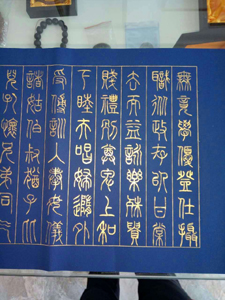 無竟學優登仕攝
職從政存以甘棠
去而益詠樂殊貴
賤禮別尊卑上和
下睦夫唱婦隨外
受傅訓入奉母儀
諸姑伯叔猶子比
兒孔懷兄弟同氣